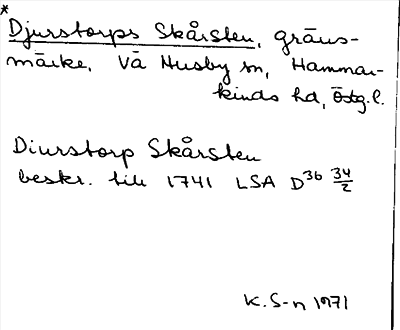 *
Djurstorps Skårsten, gräns-
märke, Vä Husby sn, Hammar-
kinds hd, Östg.l.
Diurstorp Skårsten
beskr. till 1741 LSA D36 34/2
K.S-n 1971